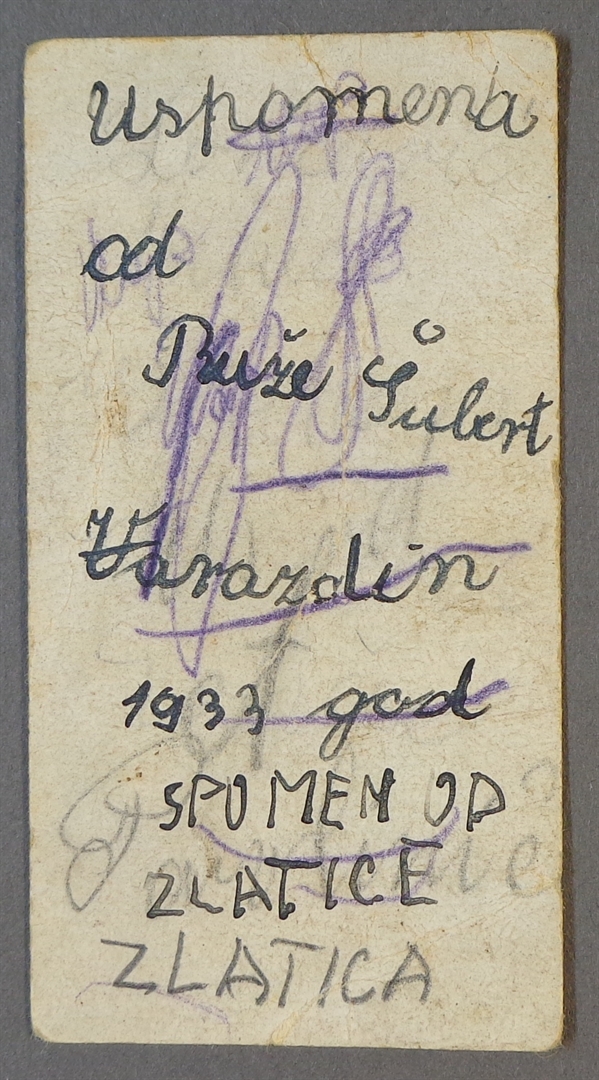 Uspomena
od
Ruže Šubert
Varazdin
1933 god
SPOMEN OD
ZLATICE
ZLATICA